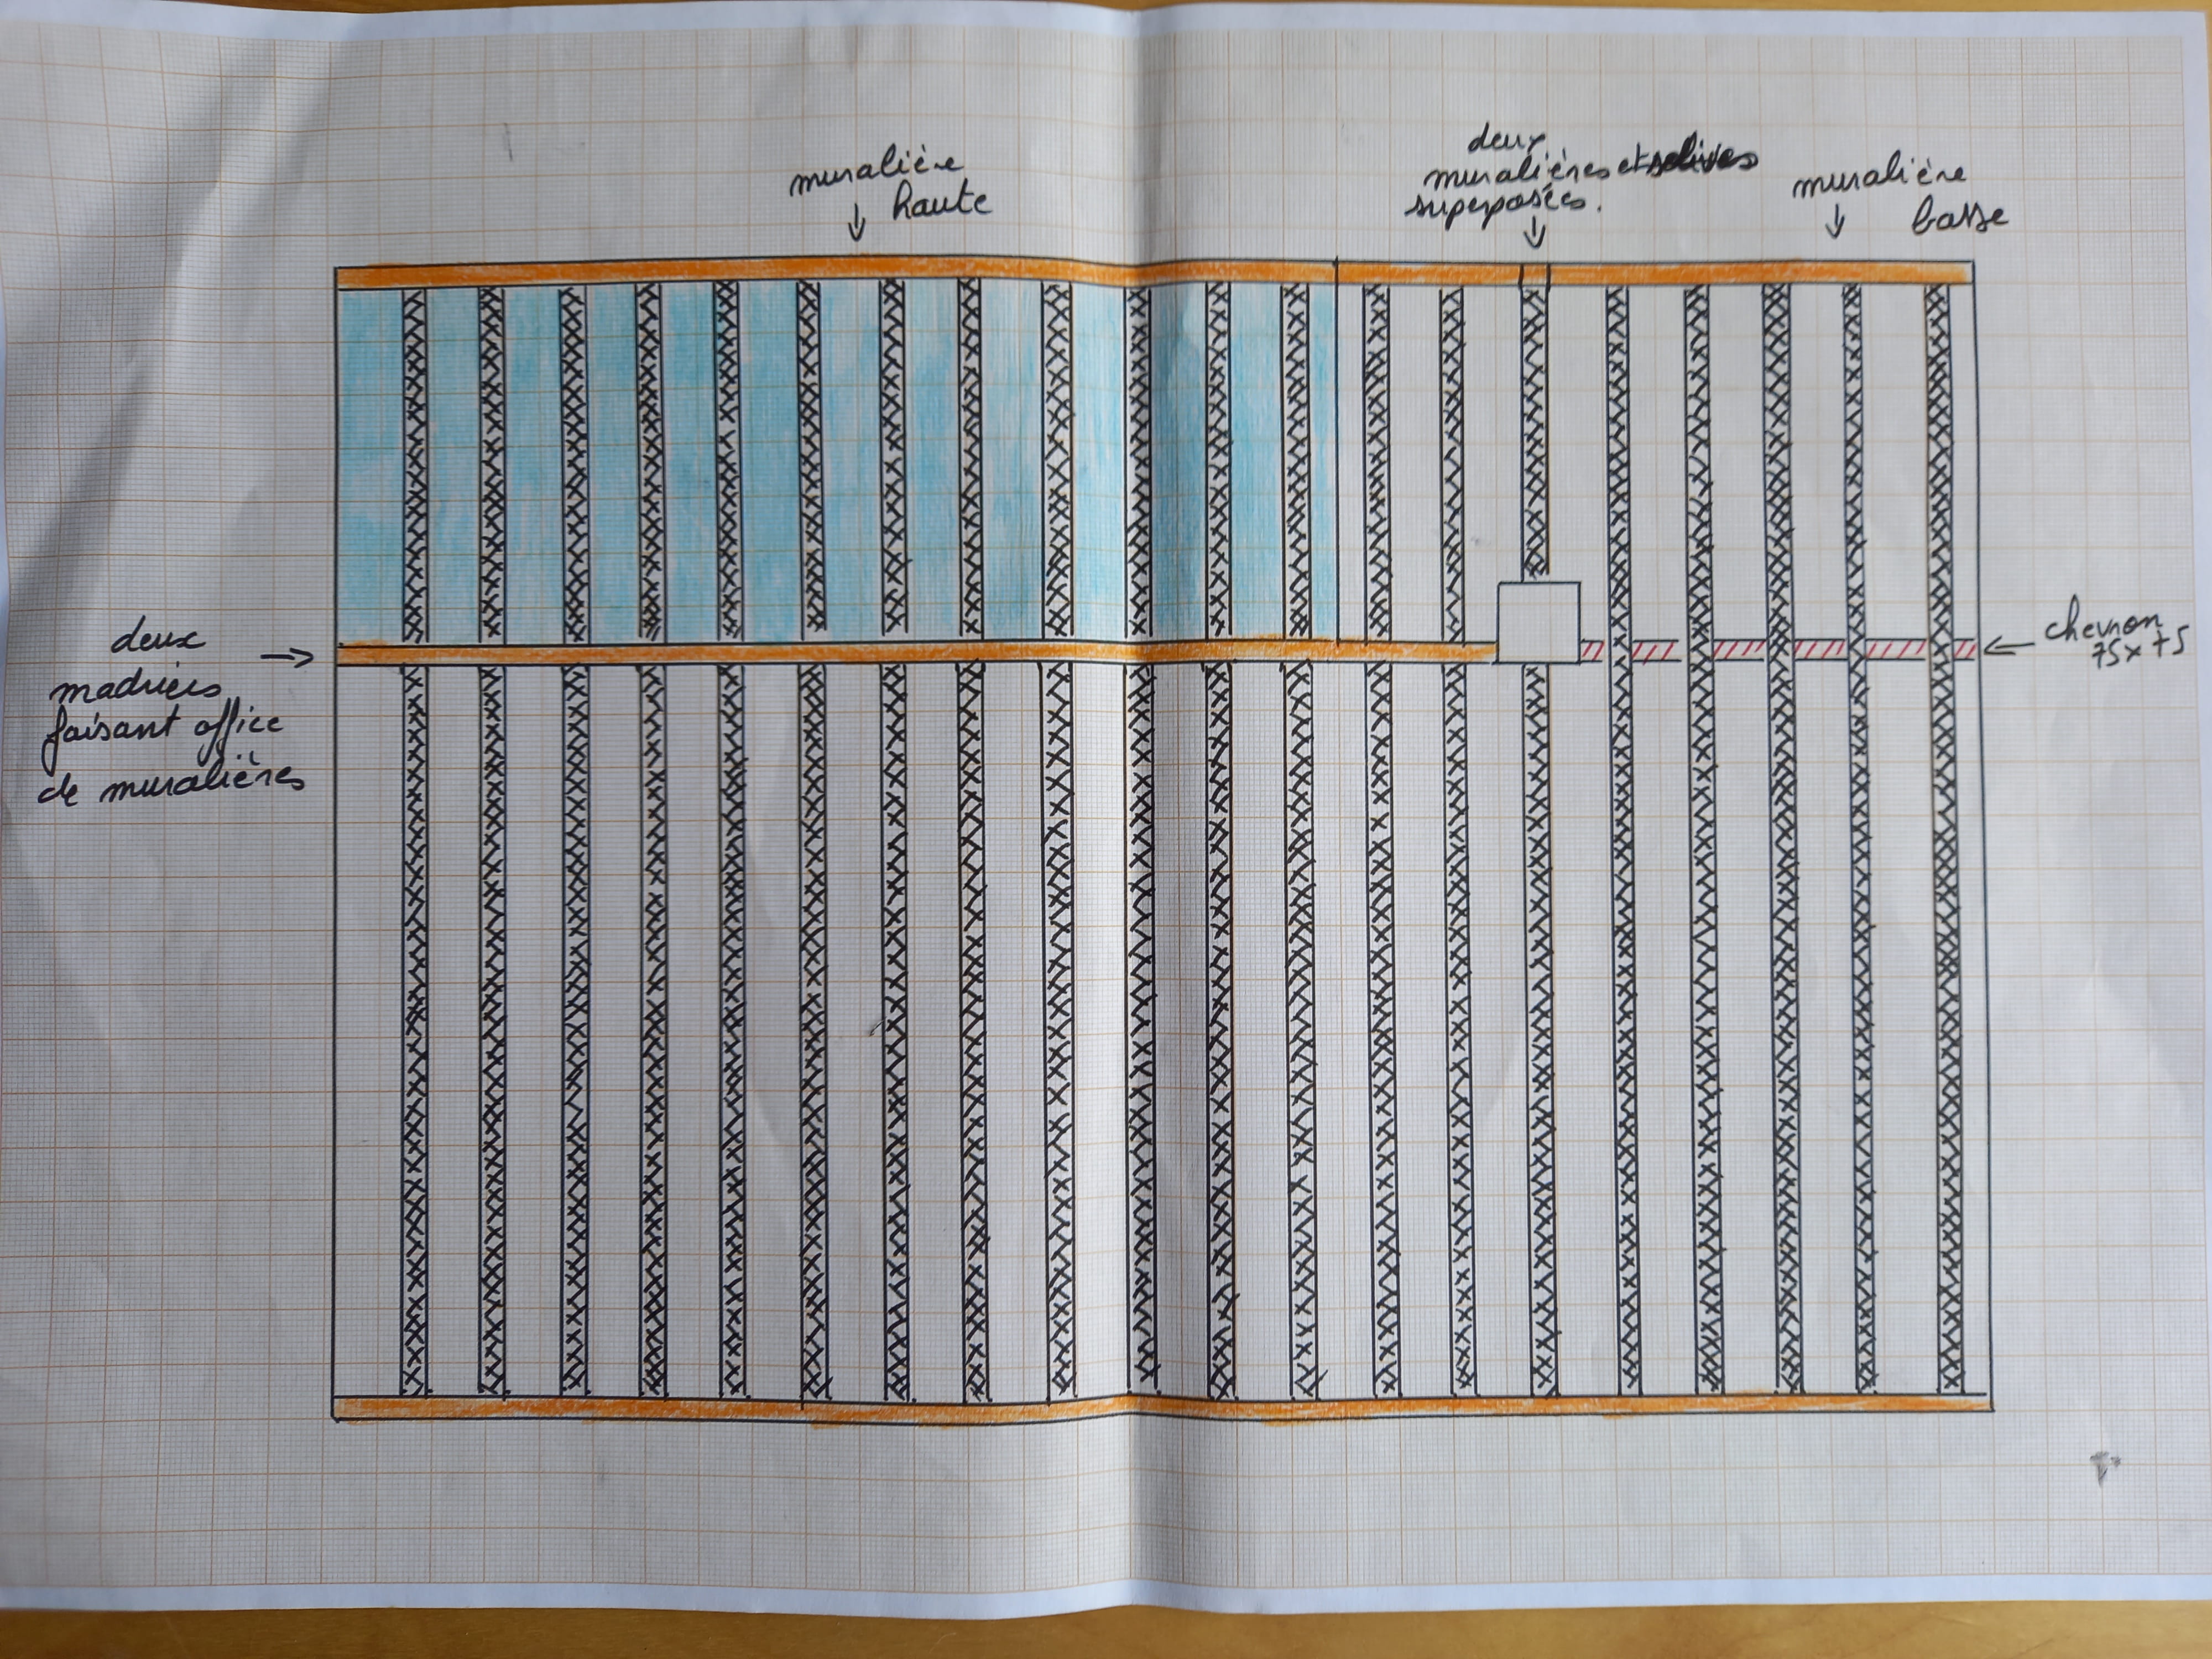 muralière
haute
deux
muralières et solives
superposées.
muralière
basse
deux
madriers
faisant office
de muralières
chevron
75x75